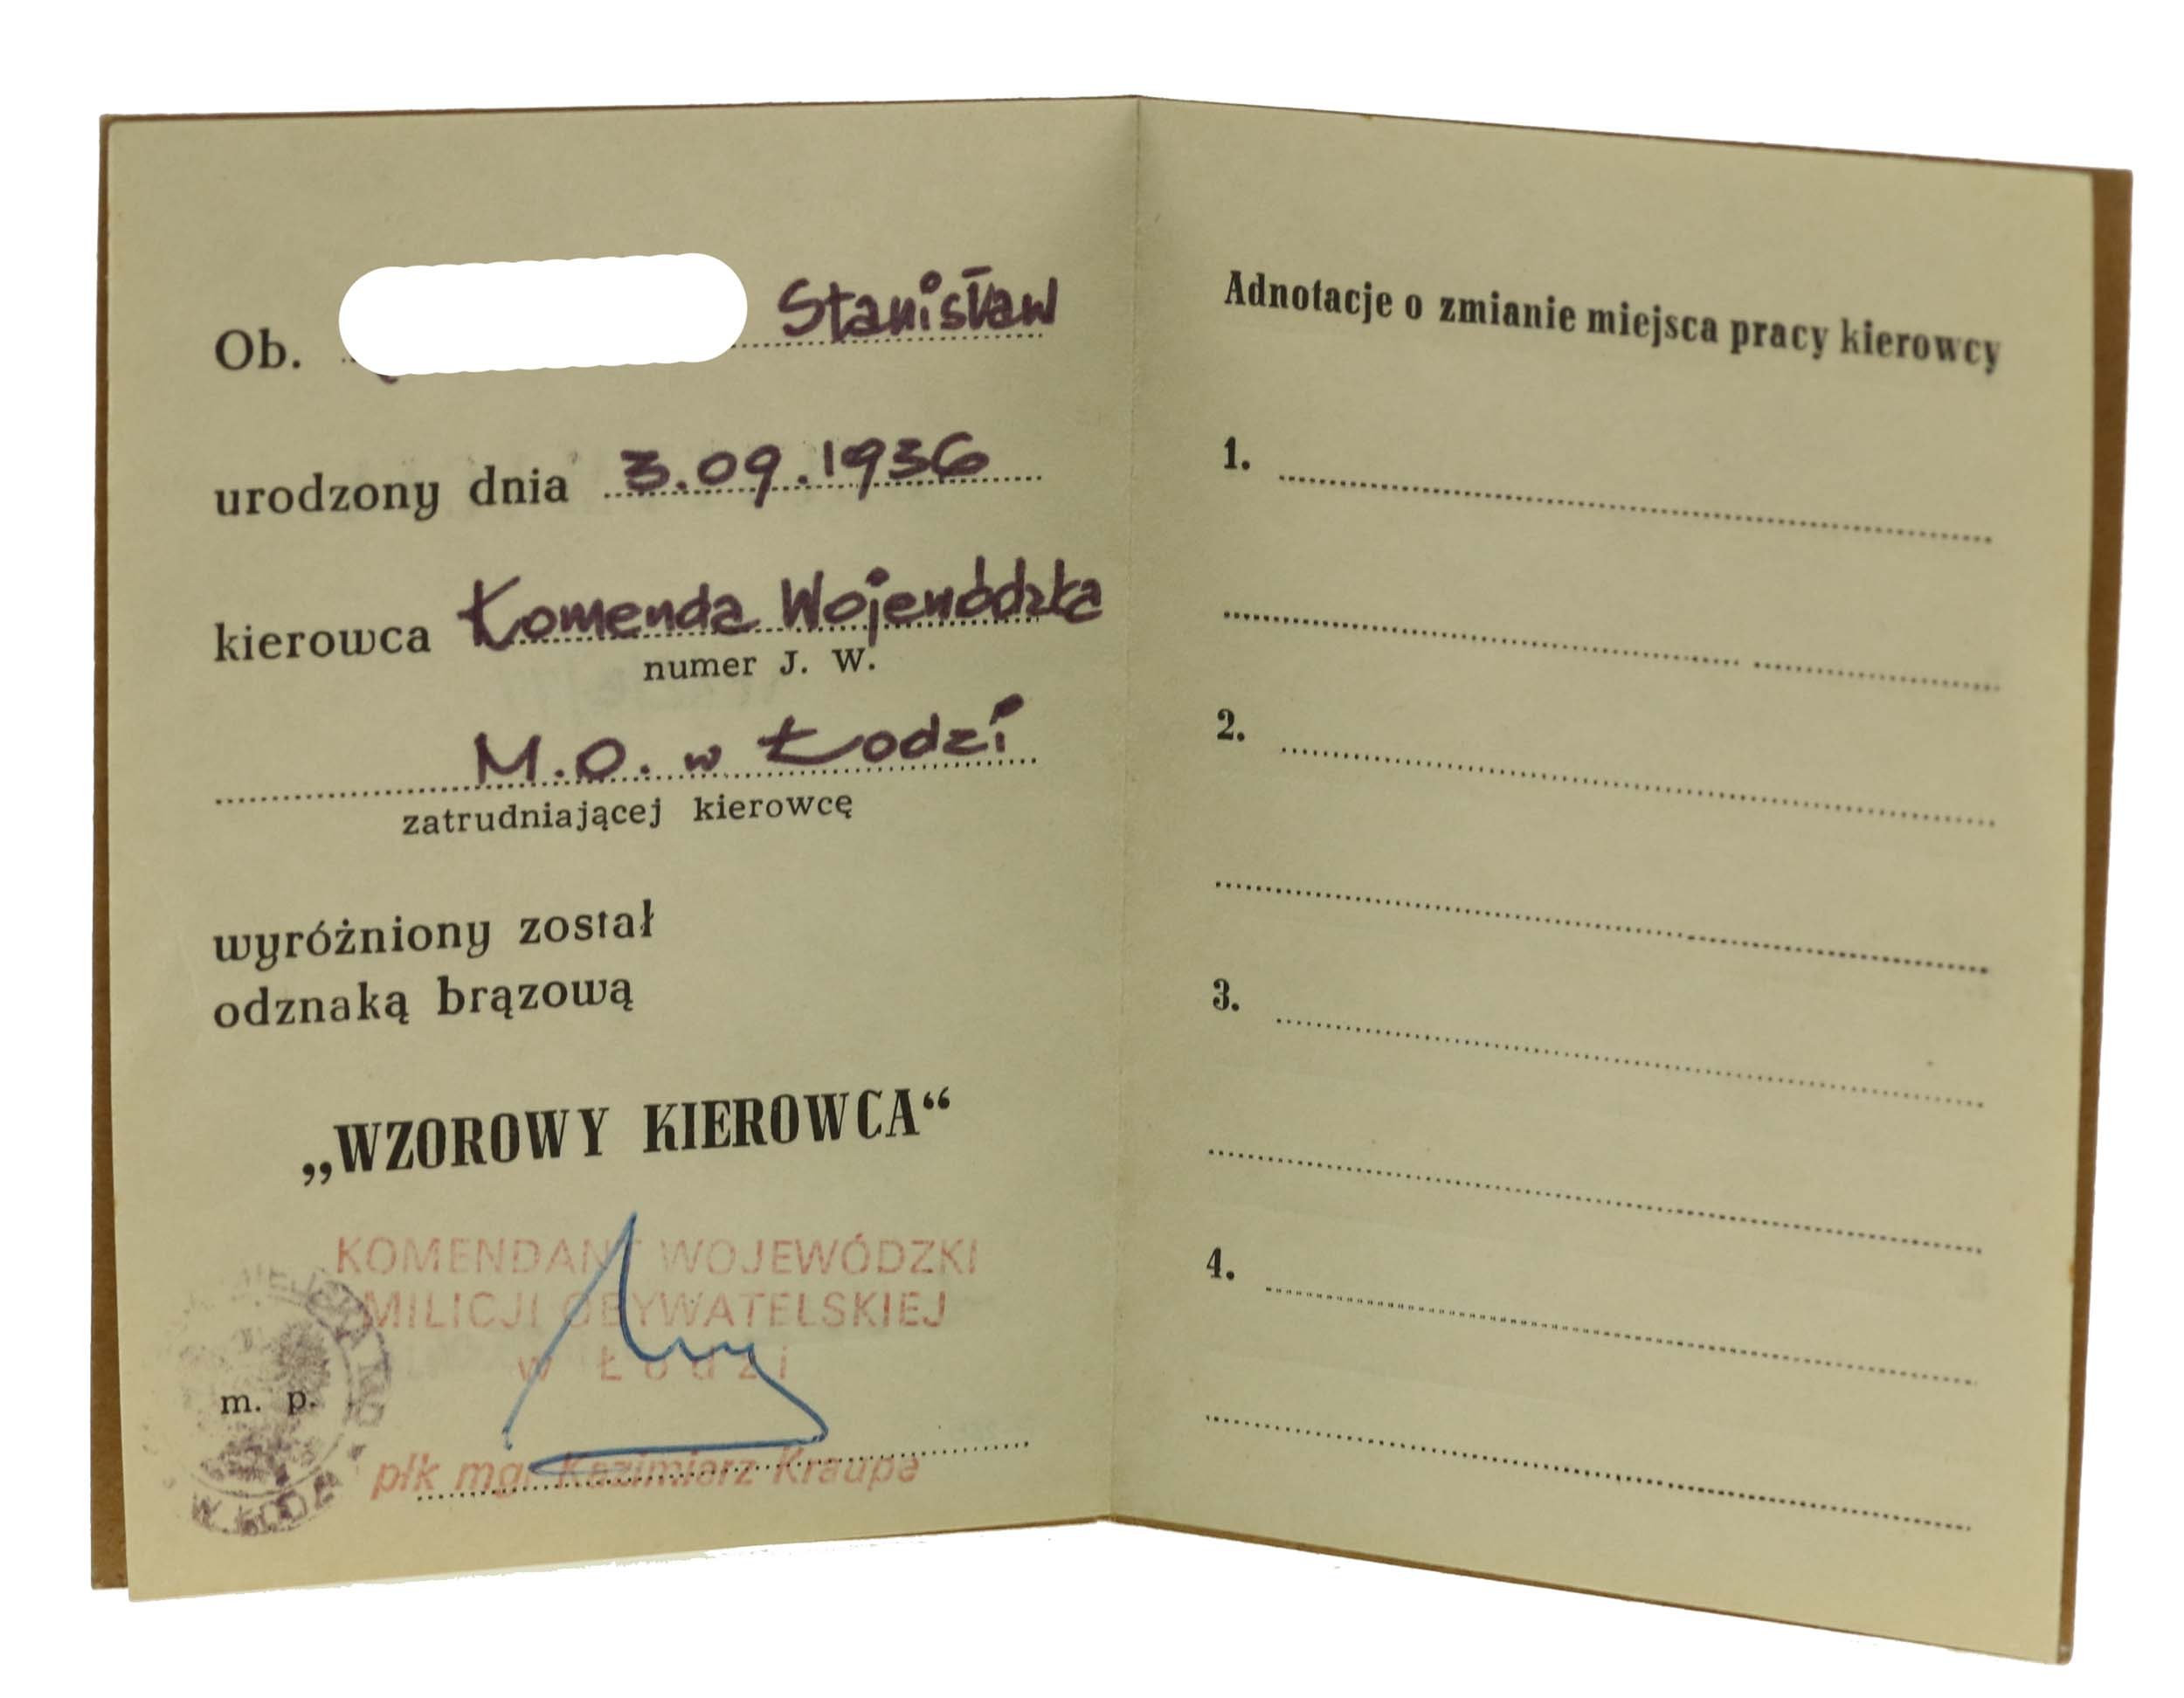 Ob. Stanisław
urodzony dnia 3.09.1936
kierowca Komenda Wojewódzka
numer J. W.
M.O. w Łodzi
zatrudniającej kierowcę
wyróżniony został
odznaką brązową
„WZOROWY KIEROWCA“
KOMENDANT WOJEWÓDZKI
MILICJI OBYWATELSKIEJ
w Łodzi
m. p.
płk mgr Kazimierz Kraupe
W ŁODZI
Adnotacje o zmianie miejsca pracy kierowcy
1.
2.
3.
4.